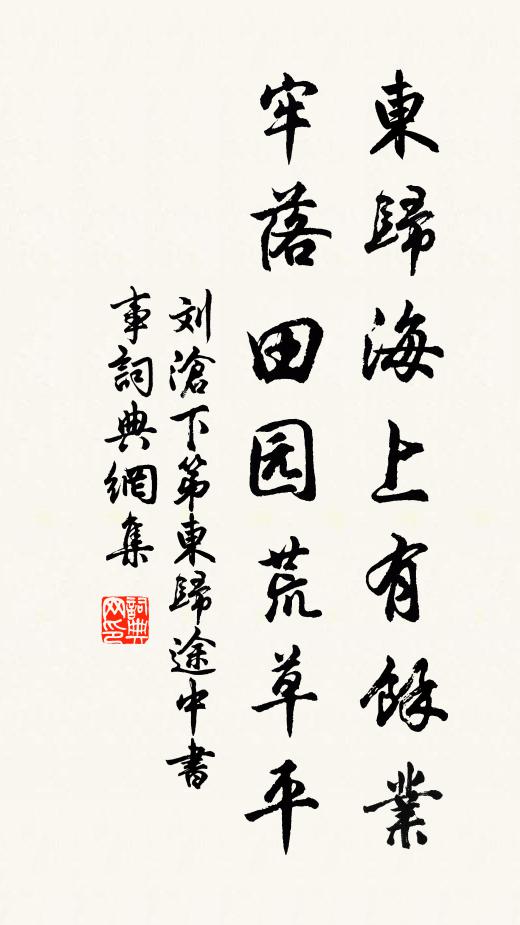 東歸海上有餘業
牢落田园荒草平
刘滄下第東歸途中書
事詞典網集
詞典
网印